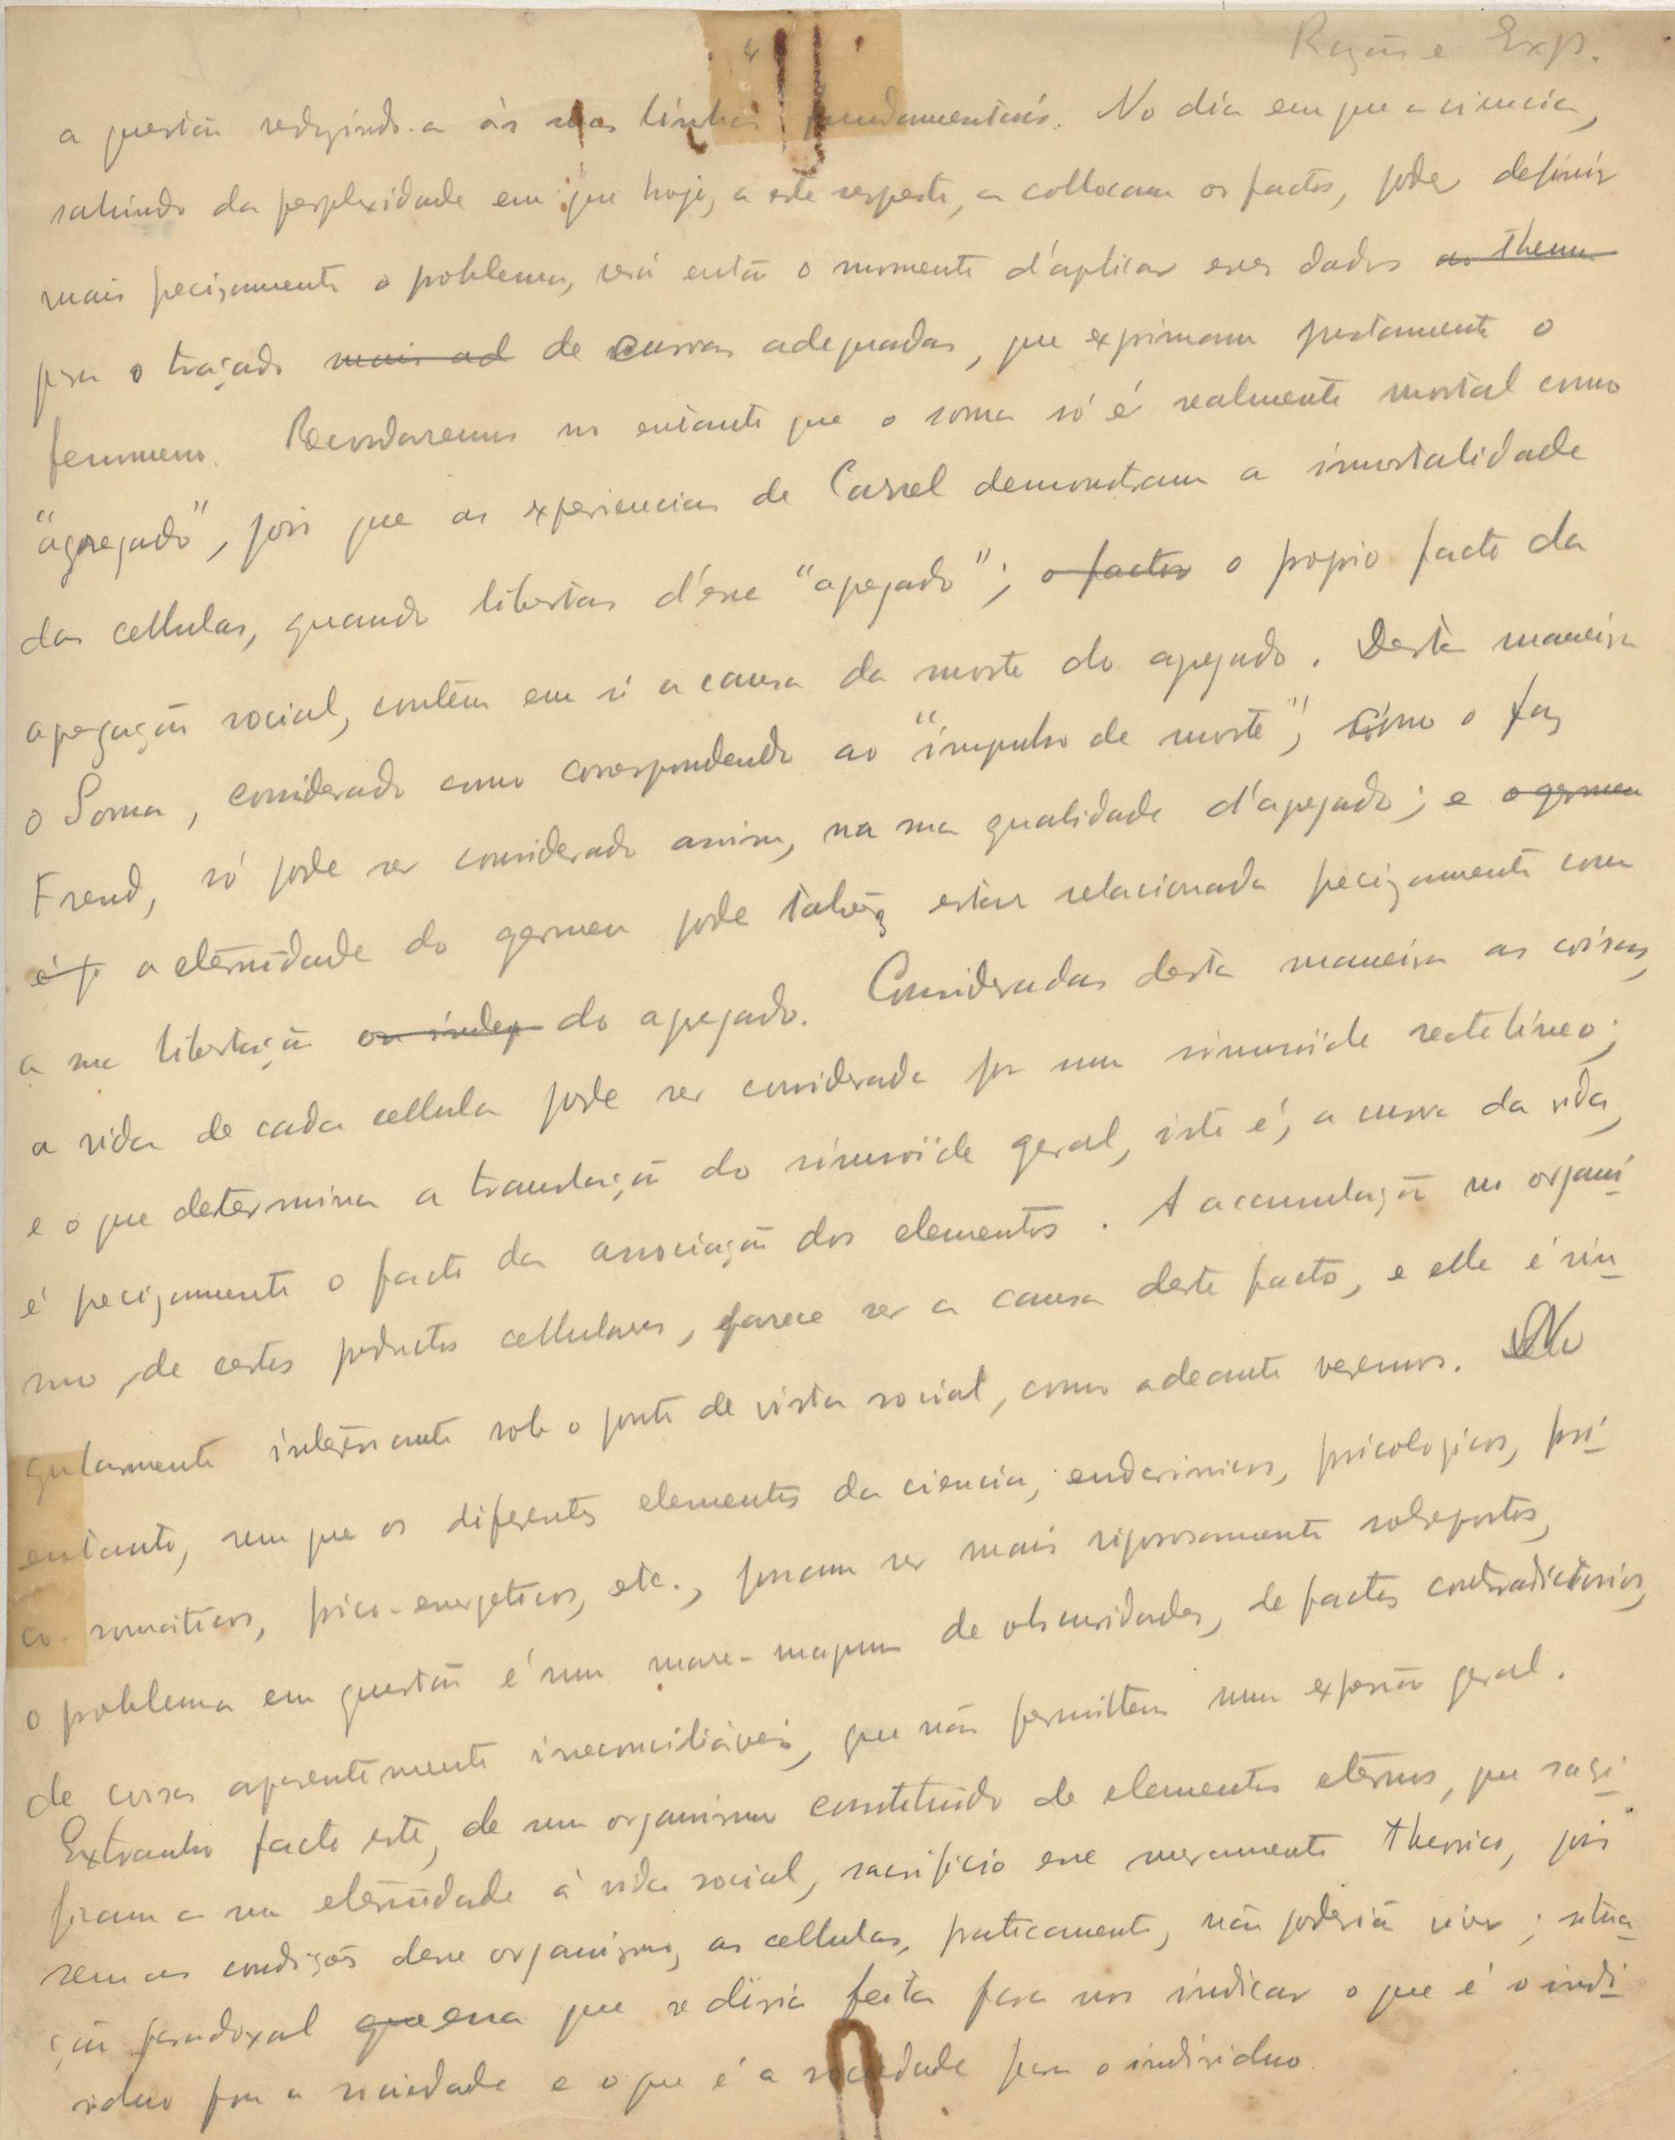 4
Razão e Exp.
a questão reduzindo-a ás suas linhas fundamentais. No dia em que a ciencia,
sahindo da perplexidade em que hoje, a este respeito, a collocam os factos, poder definir
mais precizamente o problema, será então o momento d'aplicar esses dados ao thema
para o traçado mais ad de curvas adequadas, que exprimam justamente o
fenomeno. Recordaremos no entanto que o soma só é realmente mortal como
"agregado", pois que as experiencias de Carrel demonstram a imortalidade
das cellulas, quando libertas d'esse "agregado"; o factor o proprio facto da
agregação social, contêm em si a causa da morte do agregado. Desta maneira
o Soma, considerado como correspondendo ao "impulso de morte", como o faz
Freud, só pode ser considerado assim, na sua qualidade d'agregado; e o germen
é p a eternidade do germen pode talvêz estar relacionada precizamente com
a sua libertação ou indep do agregado. Consideradas desta maneira as coisas,
a vida de cada cellula pode ser considerada por um sinusoide rectelineo;
e o que determina a translação do sinusoide geral, isto é, a curva da vida,
é precizamente o facto da associação dos elementos. A acumulação no organi
smo, de certos productos cellulares, parece ser a causa deste facto, e elle é sin
gularmente interessante sob o ponto de vista social, como adeante veremos. No
entanto, sem que os diferentes elementos da ciencia, endocrinicos, psicologicos, psi
co-somaticos, psico-energeticos, etc., possam ser mais rigorosamente sobrepostos,
o problema em questão é um mare-magnum de obscuridades, de factos contradictorios,
de coisas aparentemente irreconciliáveis, que não permittem uma expressão geral.
Extranho facto este, de um organismo constituido de elementos eternos, que sacri
ficam a sua eternidade á vida social, sacrificio esse meramente theorico, pois
sem as condições desse organismo, as cellulas, praticamente, não poderiã viver; situa
ção paradoxal que essa que se diria feita para nos indicar o que é o indi
viduo para a sociedade e o que é a sociedade para o individuo.